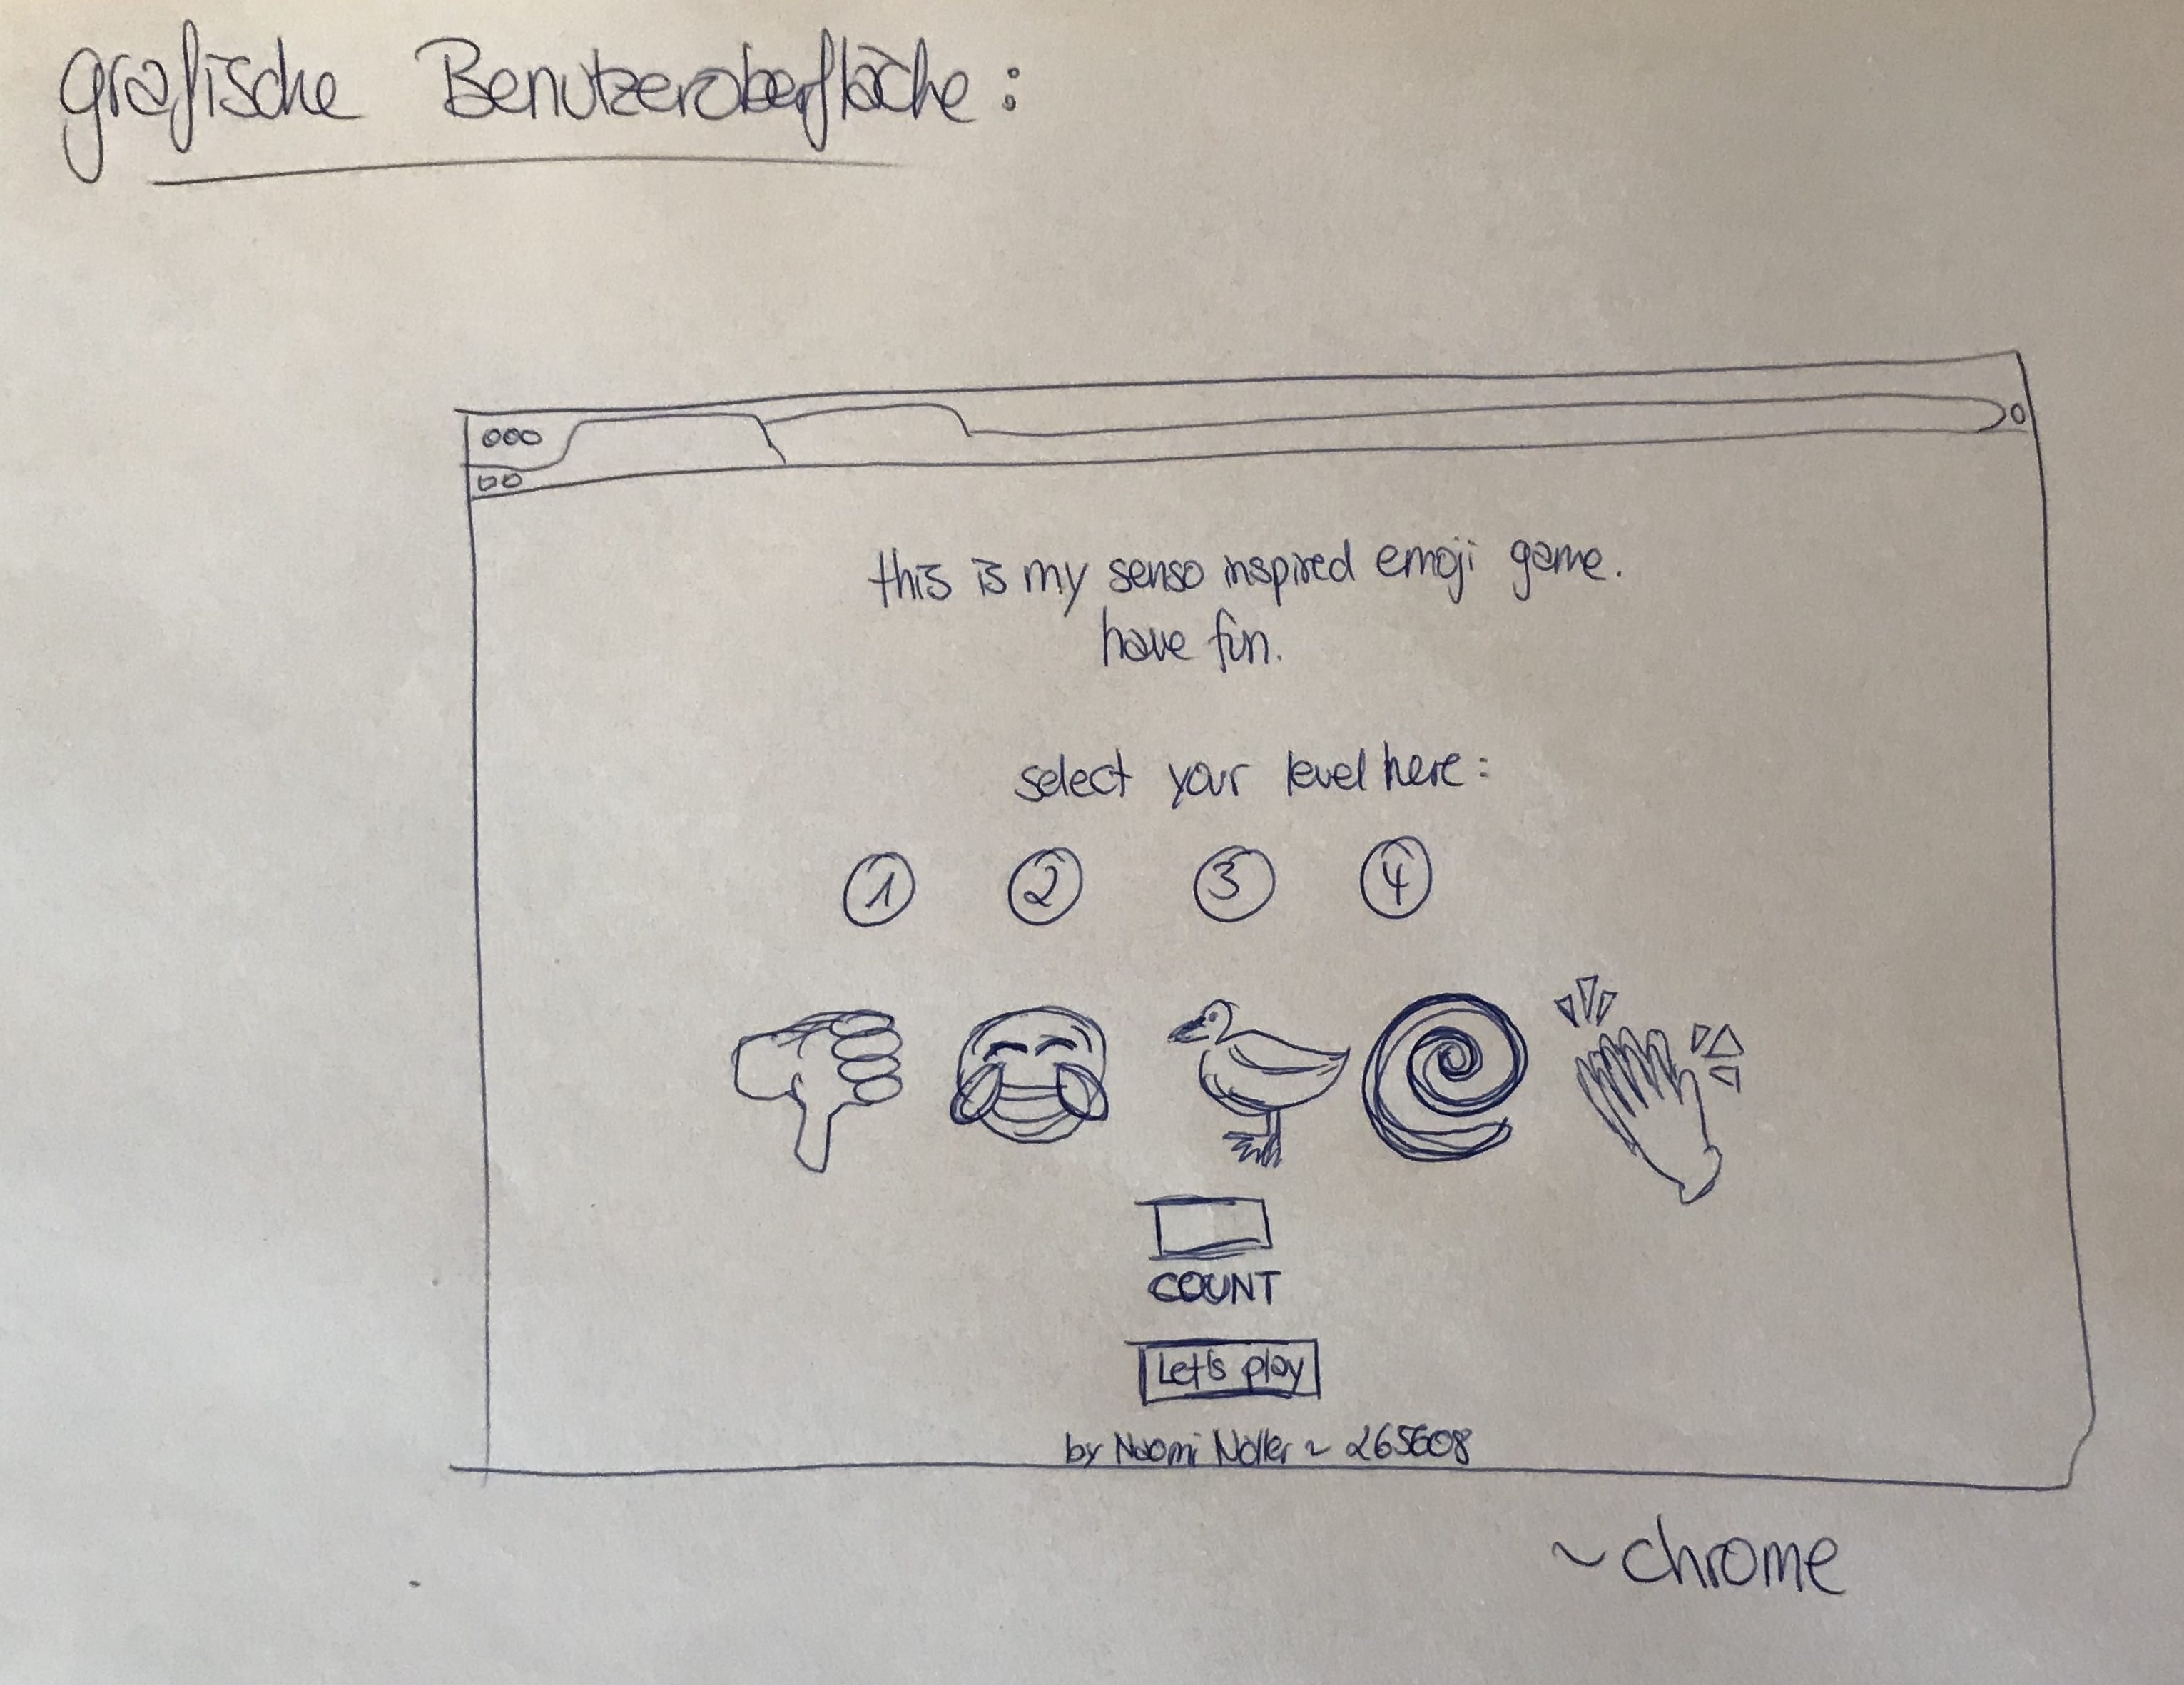 grafische Benutzeroberfläche:
this is my senso inspired emoji game.
have fun.
select your level here:
1 2 3 4
COUNT
Let's play
by Naomi Nöller ~ 265608
~ chrome